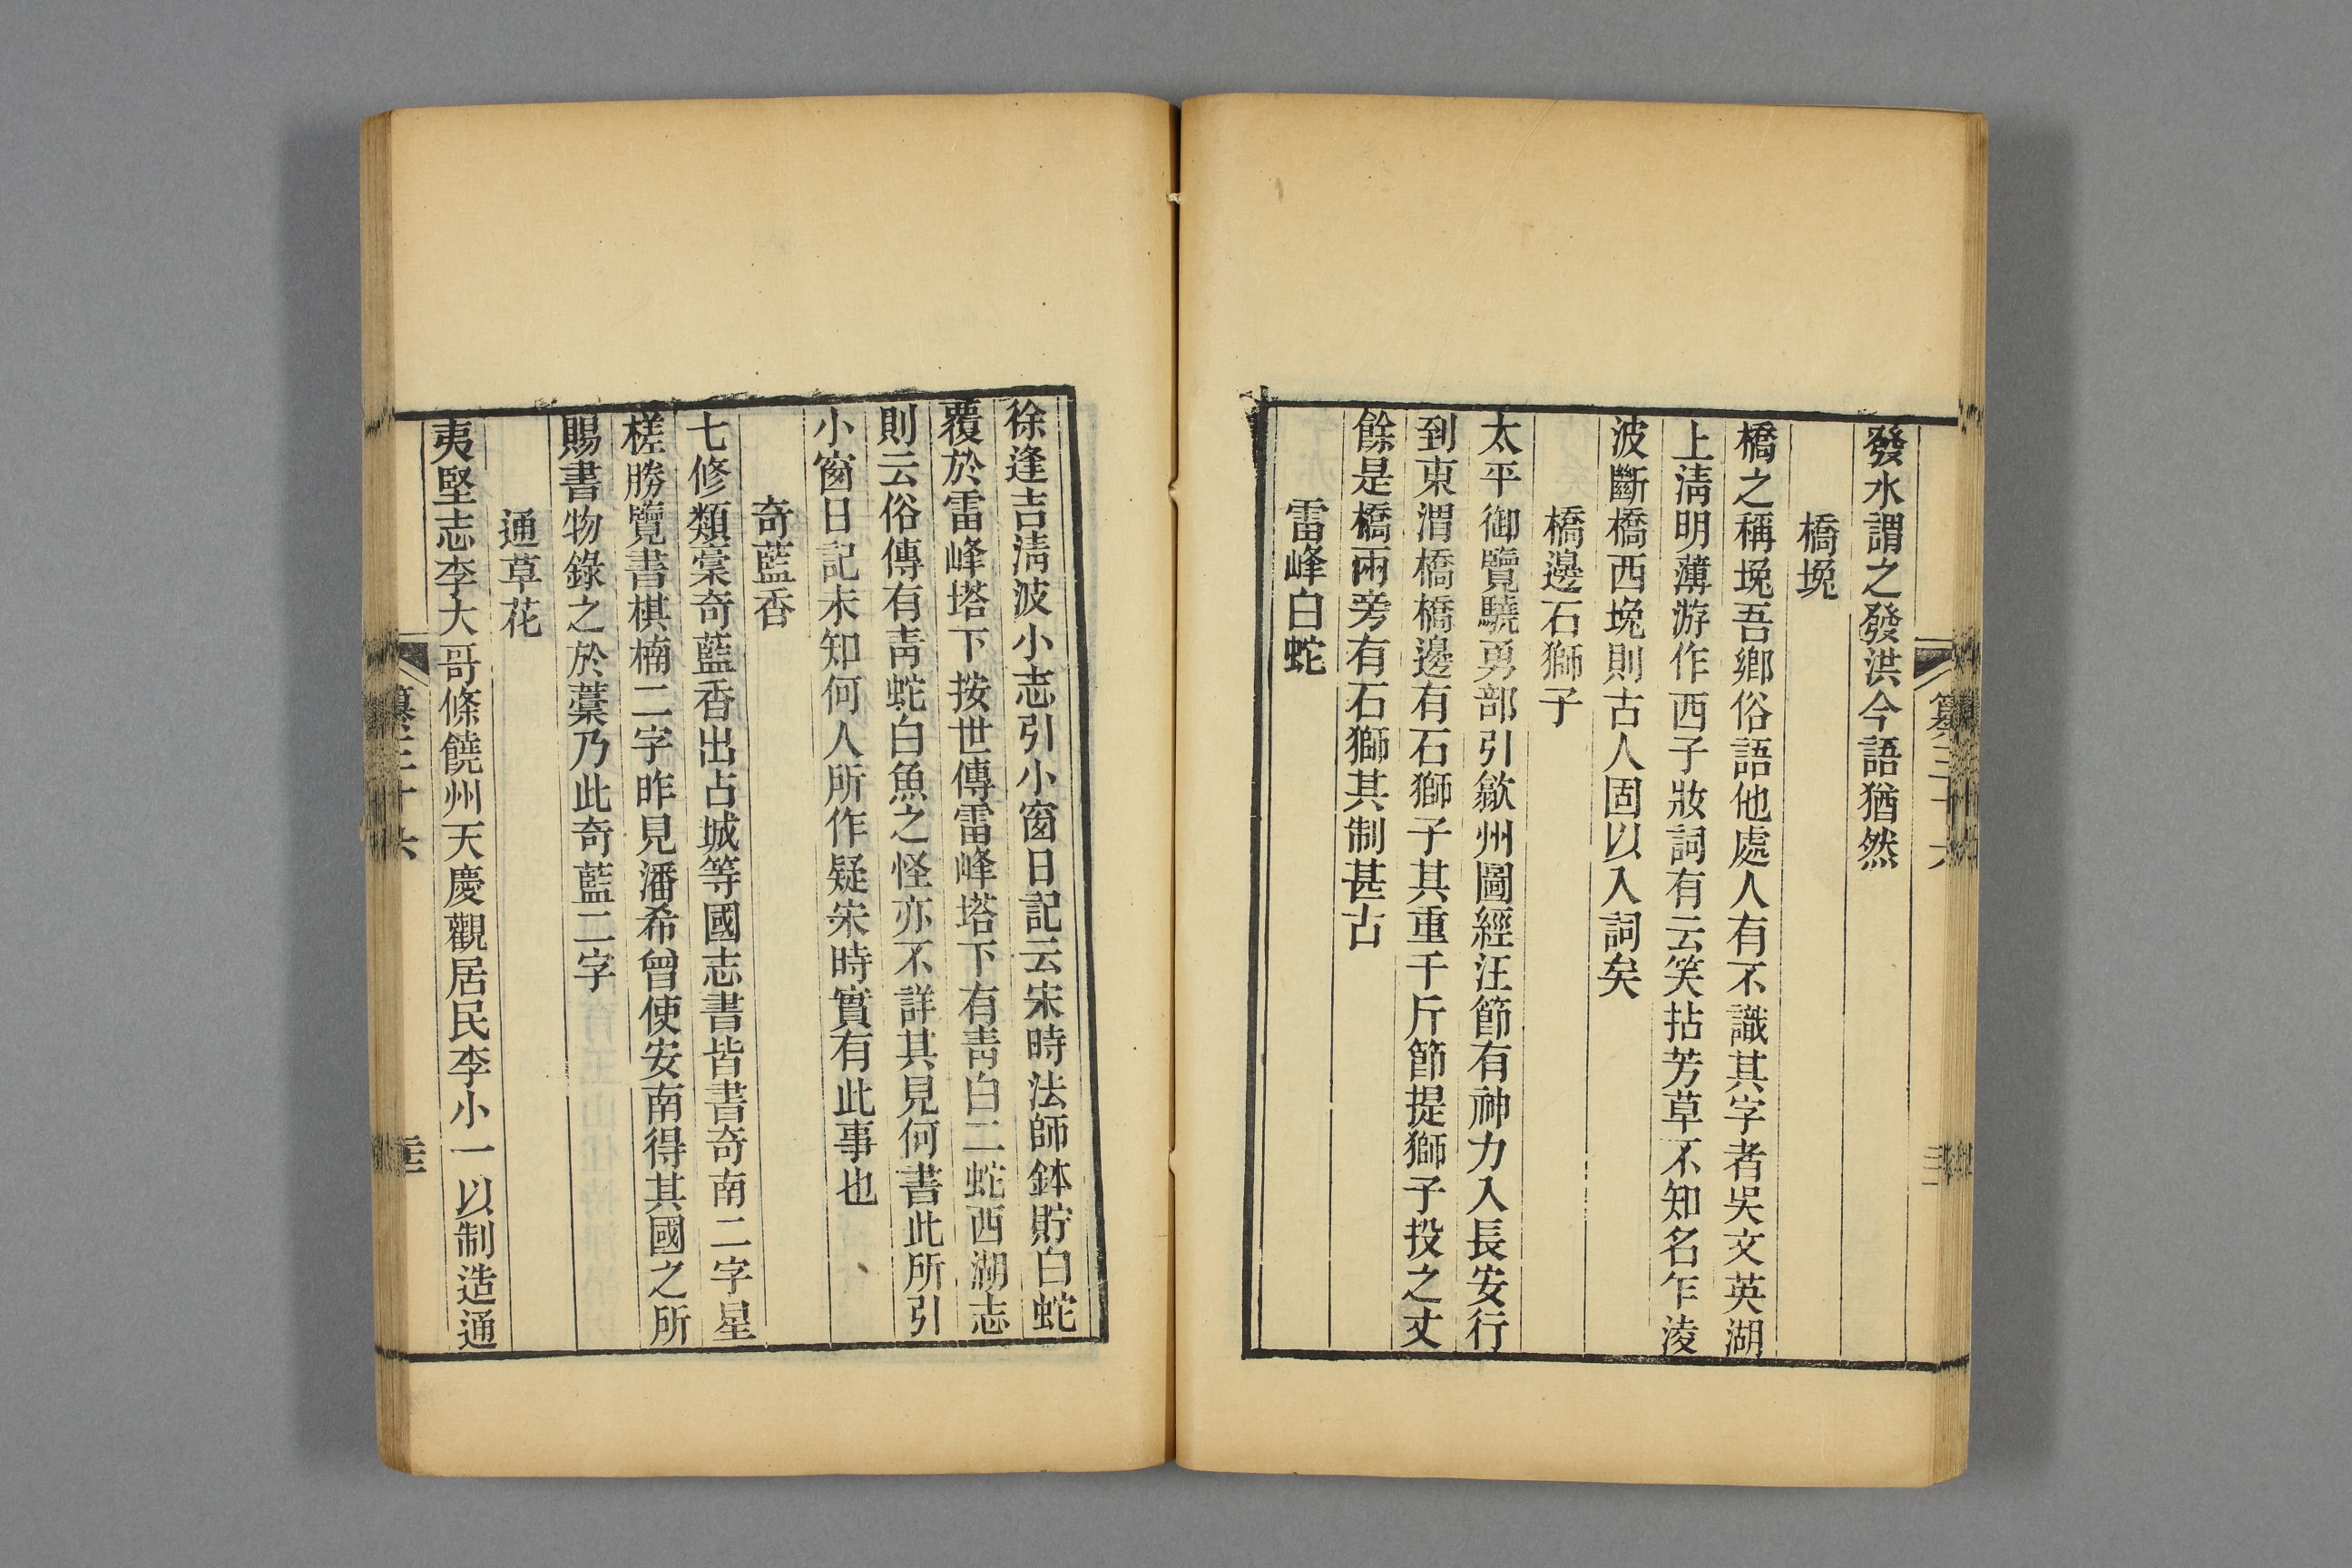 發水謂之發洪今語猶然
橋堍
橋之稱堍吾鄉俗語他處人有不識其字者吳文英湖
上淸明薄游作西子妝詞有云笑拈芳草不知名乍凌
波斷橋西堍則古人固以入詞矣
橋邊石獅子
太平御覽驍勇部引歙州圖經汪節有神力入長安行
到東渭橋橋邊有石獅子其重千斤節提獅子投之丈
餘是橋兩旁有石獅其制甚古
雷峰白蛇
徐逢吉淸波小志引小窗日記云宋時法師鉢貯白蛇
覆於雷峰塔下按世傳雷峰塔下有靑白二蛇西湖志
則云俗傳有靑蛇白魚之怪亦不詳其見何書此所引
小窗日記未知何人所作疑宋時實有此事也
奇藍香
七修類稾奇藍香出占城等國志書皆書奇南二字星
槎勝覽書棋楠二字昨見潘希曾使安南得其國之所
賜書物錄之於藁乃此奇藍二字
通草花
夷堅志李大哥條饒州天慶觀居民李小一以制造通